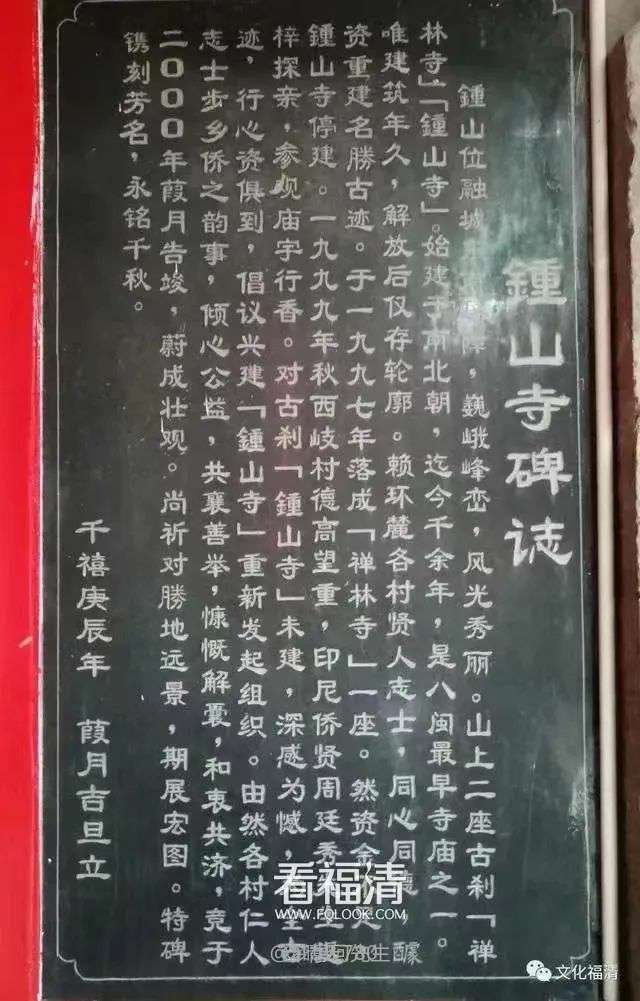 鍾山寺碑誌
鍾山位融城，巍峨峰峦，风光秀丽。山上二座古刹「禅
林寺」「鍾山寺」。始建于南北朝，迄今千余年，是八闽最早寺庙之一。
唯建筑年久，解放后仅存轮廓。赖环麓各村贤人志士，同心同
资重建名勝古迹。于一九九七年落成「禅林寺」一座。然资金
鍾山寺停建。一九九九年秋西岐村德高望重，印尼侨贤周廷秀
梓探亲，参观庙宇行香。对古刹「鍾山寺」未建，深感为憾，古
迹，行心资俱到，倡议兴建「鍾山寺」重新发起组织。由然各村仁人
志士步乡侨之韵事，倾心公益，共襄善举，慷慨解囊，和衷共济，竞于
二〇〇〇年葭月告竣，蔚成壮观。尚祈对勝地远景，期展宏图。特碑
镌刻芳名，永铭千秋。
千禧庚辰年 葭月吉旦立
看福清
WWW.FQLOOK.COM
文化福清